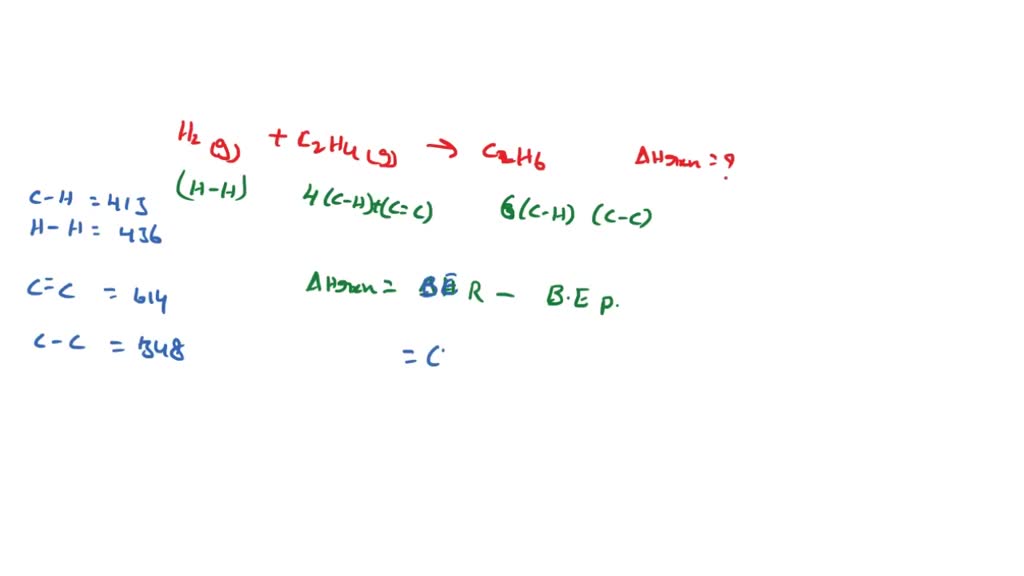 H₂ (g) + C₂H₄ (g) → C₂H₆ ΔHrxn = ?
(H-H) 4(C-H)+(C=C) 6(C-H) (C-C)
C-H = 413
H-H = 436
C=C = 614
C-C = 348
ΔHrxn = BE R - B.E p.
= (